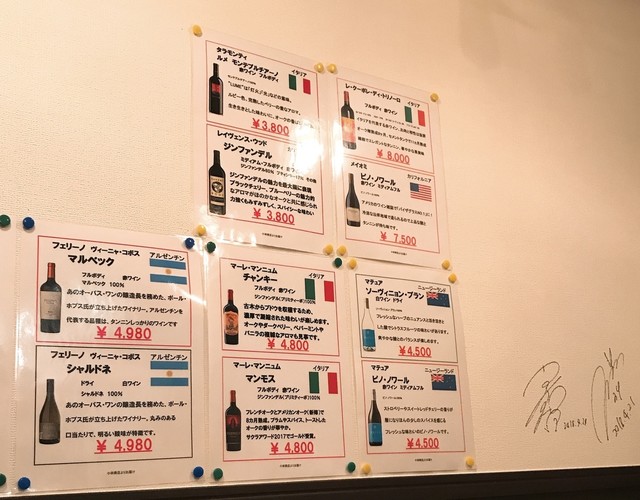 タラモンティ
イタリア
ルメ モンテプルチアーノ
赤ワイン フルボディ
￥3,800
レイヴェンス・ウッド
ジンファンデル
ジンファンデルの魅力を最大限に表現
ブラックチェリー、ブルーベリーの魅力的
なアロマがほのかなオークと共に感じられ
￥3,800
レ・クーポレ・ディ・トリノーロ
イタリア
フルボディ 赤ワイン
￥8,000
メイオミ
カリフォルニア
ピノ・ノワール
赤ワイン ミディアムフル
￥7,500
フェリーノ ヴィーニャ・コボス
アルゼンチン
マルベック
フルボディ 赤ワイン
マルベック 100%
あのオーパス・ワンの醸造長を務めた、ポール・
ホブス氏が立ち上げたワイナリー。アルゼンチンを
代表する品種は、タンニンしっかりのワインです
￥4,980
フェリーノ ヴィーニャ・コボス
アルゼンチン
シャルドネ
ドライ 白ワイン
シャルドネ 100%
あのオーパス・ワンの醸造長を務めた、ポール・
ホブス氏が立ち上げたワイナリー。丸みのある
口当たりで、明るい酸味が特徴です。
￥4,980
マーレ・マンニュム
イタリア
チャンキー
フルボディ 赤ワイン
ジンファンデル(プリミティーボ)100%
古木からブドウを収穫するため、
濃厚で凝縮された味わいが楽しめます。
オークやダークベリー、ペパーミントや
バニラの複雑なアロマも見事です。
￥4,800
マーレ・マンニュム
イタリア
マンモス
フルボディ 赤ワイン
ジンファンデル(プリミティーボ)100%
フレンチオークとアメリカンオーク(新樽)で
8カ月熟成。プラムやスパイス、トーストした
オークの香りが華やか。
サクラアワード2017でゴールド受賞。
￥4,800
マチュア
ニュージーランド
ソーヴィニョン・ブラン
白ワイン ドライ
￥4,500
マチュア
ニュージーランド
ピノ・ノワール
赤ワイン ミディアムフル
ストロベリーやスイートレッドチェリーの香りが
フレッシュな味わいのピノ・ノワールです。
￥4,500
2018.4.21
2018.4.21